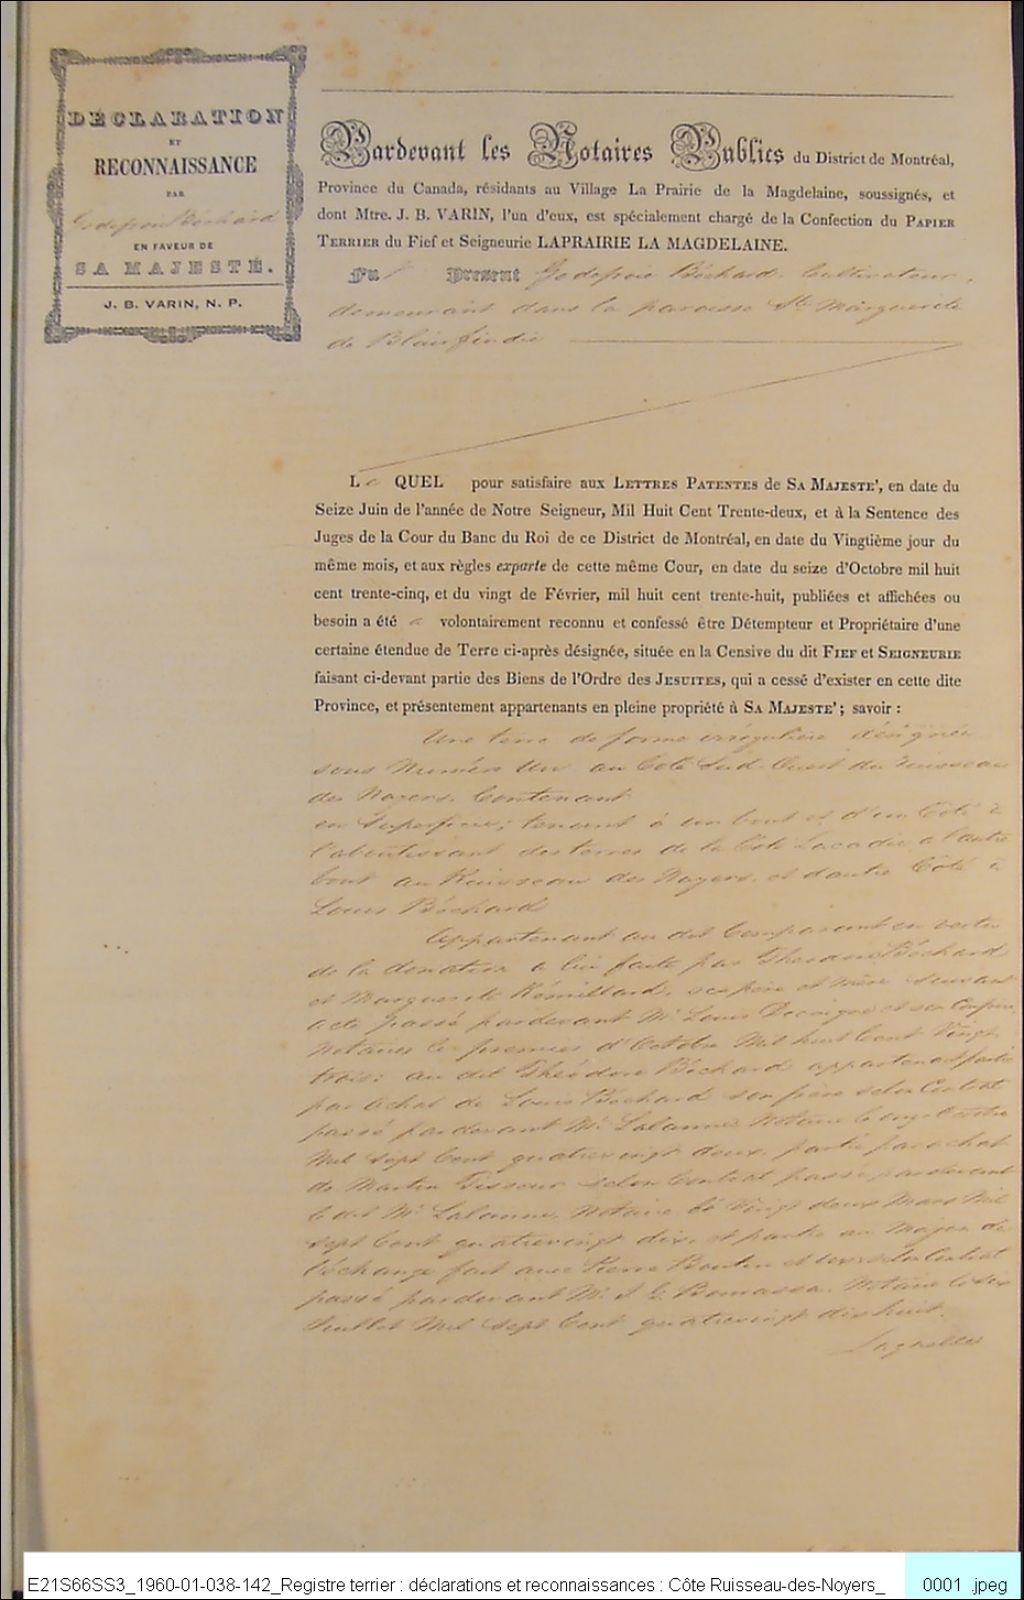 DÉCLARATION
ET
RECONNAISSANCE
PAR
Godefroi Béchard
EN FAVEUR DE
SA MAJESTÉ.
J. B. VARIN, N. P.
Pardevant les Notaires Publics du District de Montréal,
Province du Canada, résidants au Village La Prairie de la Magdelaine, soussignés, et
dont Mtre. J. B. VARIN, l'un d'eux, est spécialement chargé de la Confection du PAPIER
TERRIER du Fief et Seigneurie LAPRAIRIE LA MAGDELAINE.
Fut Present Godefroie Béchard. Cultivateur,
demeurant dans la paroisse Ste Marguerite
de Blairfindie
Le QUEL pour satisfaire aux LETTRES PATENTES de SA MAJESTE', en date du
Seize Juin de l'année de Notre Seigneur, Mil Huit Cent Trente-deux, et à la Sentence des
Juges de la Cour du Banc du Roi de ce District de Montréal, en date du Vingtième jour du
même mois, et aux règles exparte de cette même Cour, en date du seize d'Octobre mil huit
cent trente-cinq, et du vingt de Février, mil huit cent trente-huit, publiées et affichées ou
besoin a été a volontairement reconnu et confessé être Détempteur et Propriétaire d'une
certaine étendue de Terre ci-après désignée, située en la Censive du dit FIEF et SEIGNEURIE
faisant ci-devant partie des Biens de l'Ordre des JESUITES, qui a cessé d'exister en cette dite
Province, et présentement appartenants en pleine propriété à SA MAJESTE' ; savoir :
Une terre de forme irrégulière désignée
sous Numéro Un au Coté Sud-Ouest du Ruisseau
des Noyers. Contenant
en Superficie; tenant à un bout et d'un Côté à
l'aboutissant des terres de la Côte Lacadie, a l'autre
bout au Ruisseau des Noyers, et d'autre Côté à
Louis Béchard
Appartenant au dit Comparant en vertu
de la donation a lui faite par Théodore Béchard
et Marguerite Rémillard, ses père et mère suivant
acte passé pardevant Mr. Louis et son Confrère,
Notaires le premier d'Octobre Mil huit Cent Vingt
trois: au dit Théodore Béchard appartenant partie
par achat de Louis Béchard son père selon Contrat
passé pardevant Mr. Lalanne Notaire le
Mil Sept Cent quatrevingt deux, partie par achat
de Martin Tisseur selon Contrat passé pardevant
le dit Mr. Lalanne. Notaire le Vingt deux Mars Mil
Sept Cent quatrevingt dix, et partie au Moyen de
l'échange fait avec Pierre et selon Contrat
passé pardevant Mr. Notaire le Six
Juillet Mil Sept Cent quatrevingt dix huit.
Laquelle
E21S66SS3_1960-01-038-142_Registre terrier : déclarations et reconnaissances : Côte Ruisseau-des-Noyers_ 0001 .jpeg